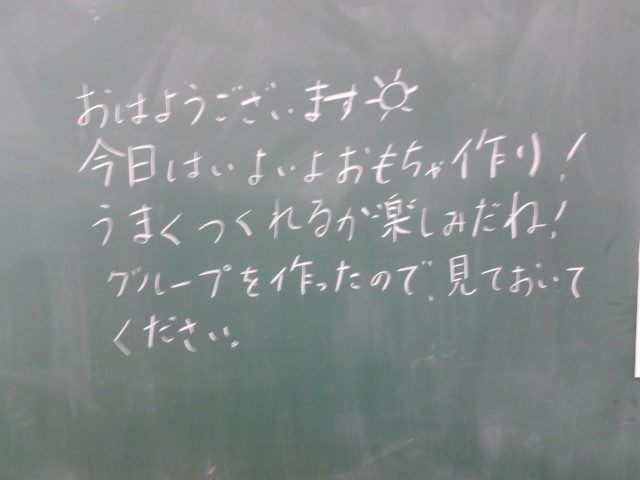 おはようございます☼
今日はいよいよおもちゃ作り!
うまくつくれるか楽しみだね!
グループを作ったので、見ておいて
ください。